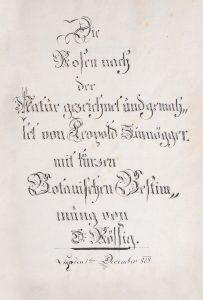 Die
Rosen nach
der
Natur gezeichnet und gemah„
let von Leopold Zinnögger.
mit kurzen
Botanischen Bestim„
mung von
Dr. Rößig.
December